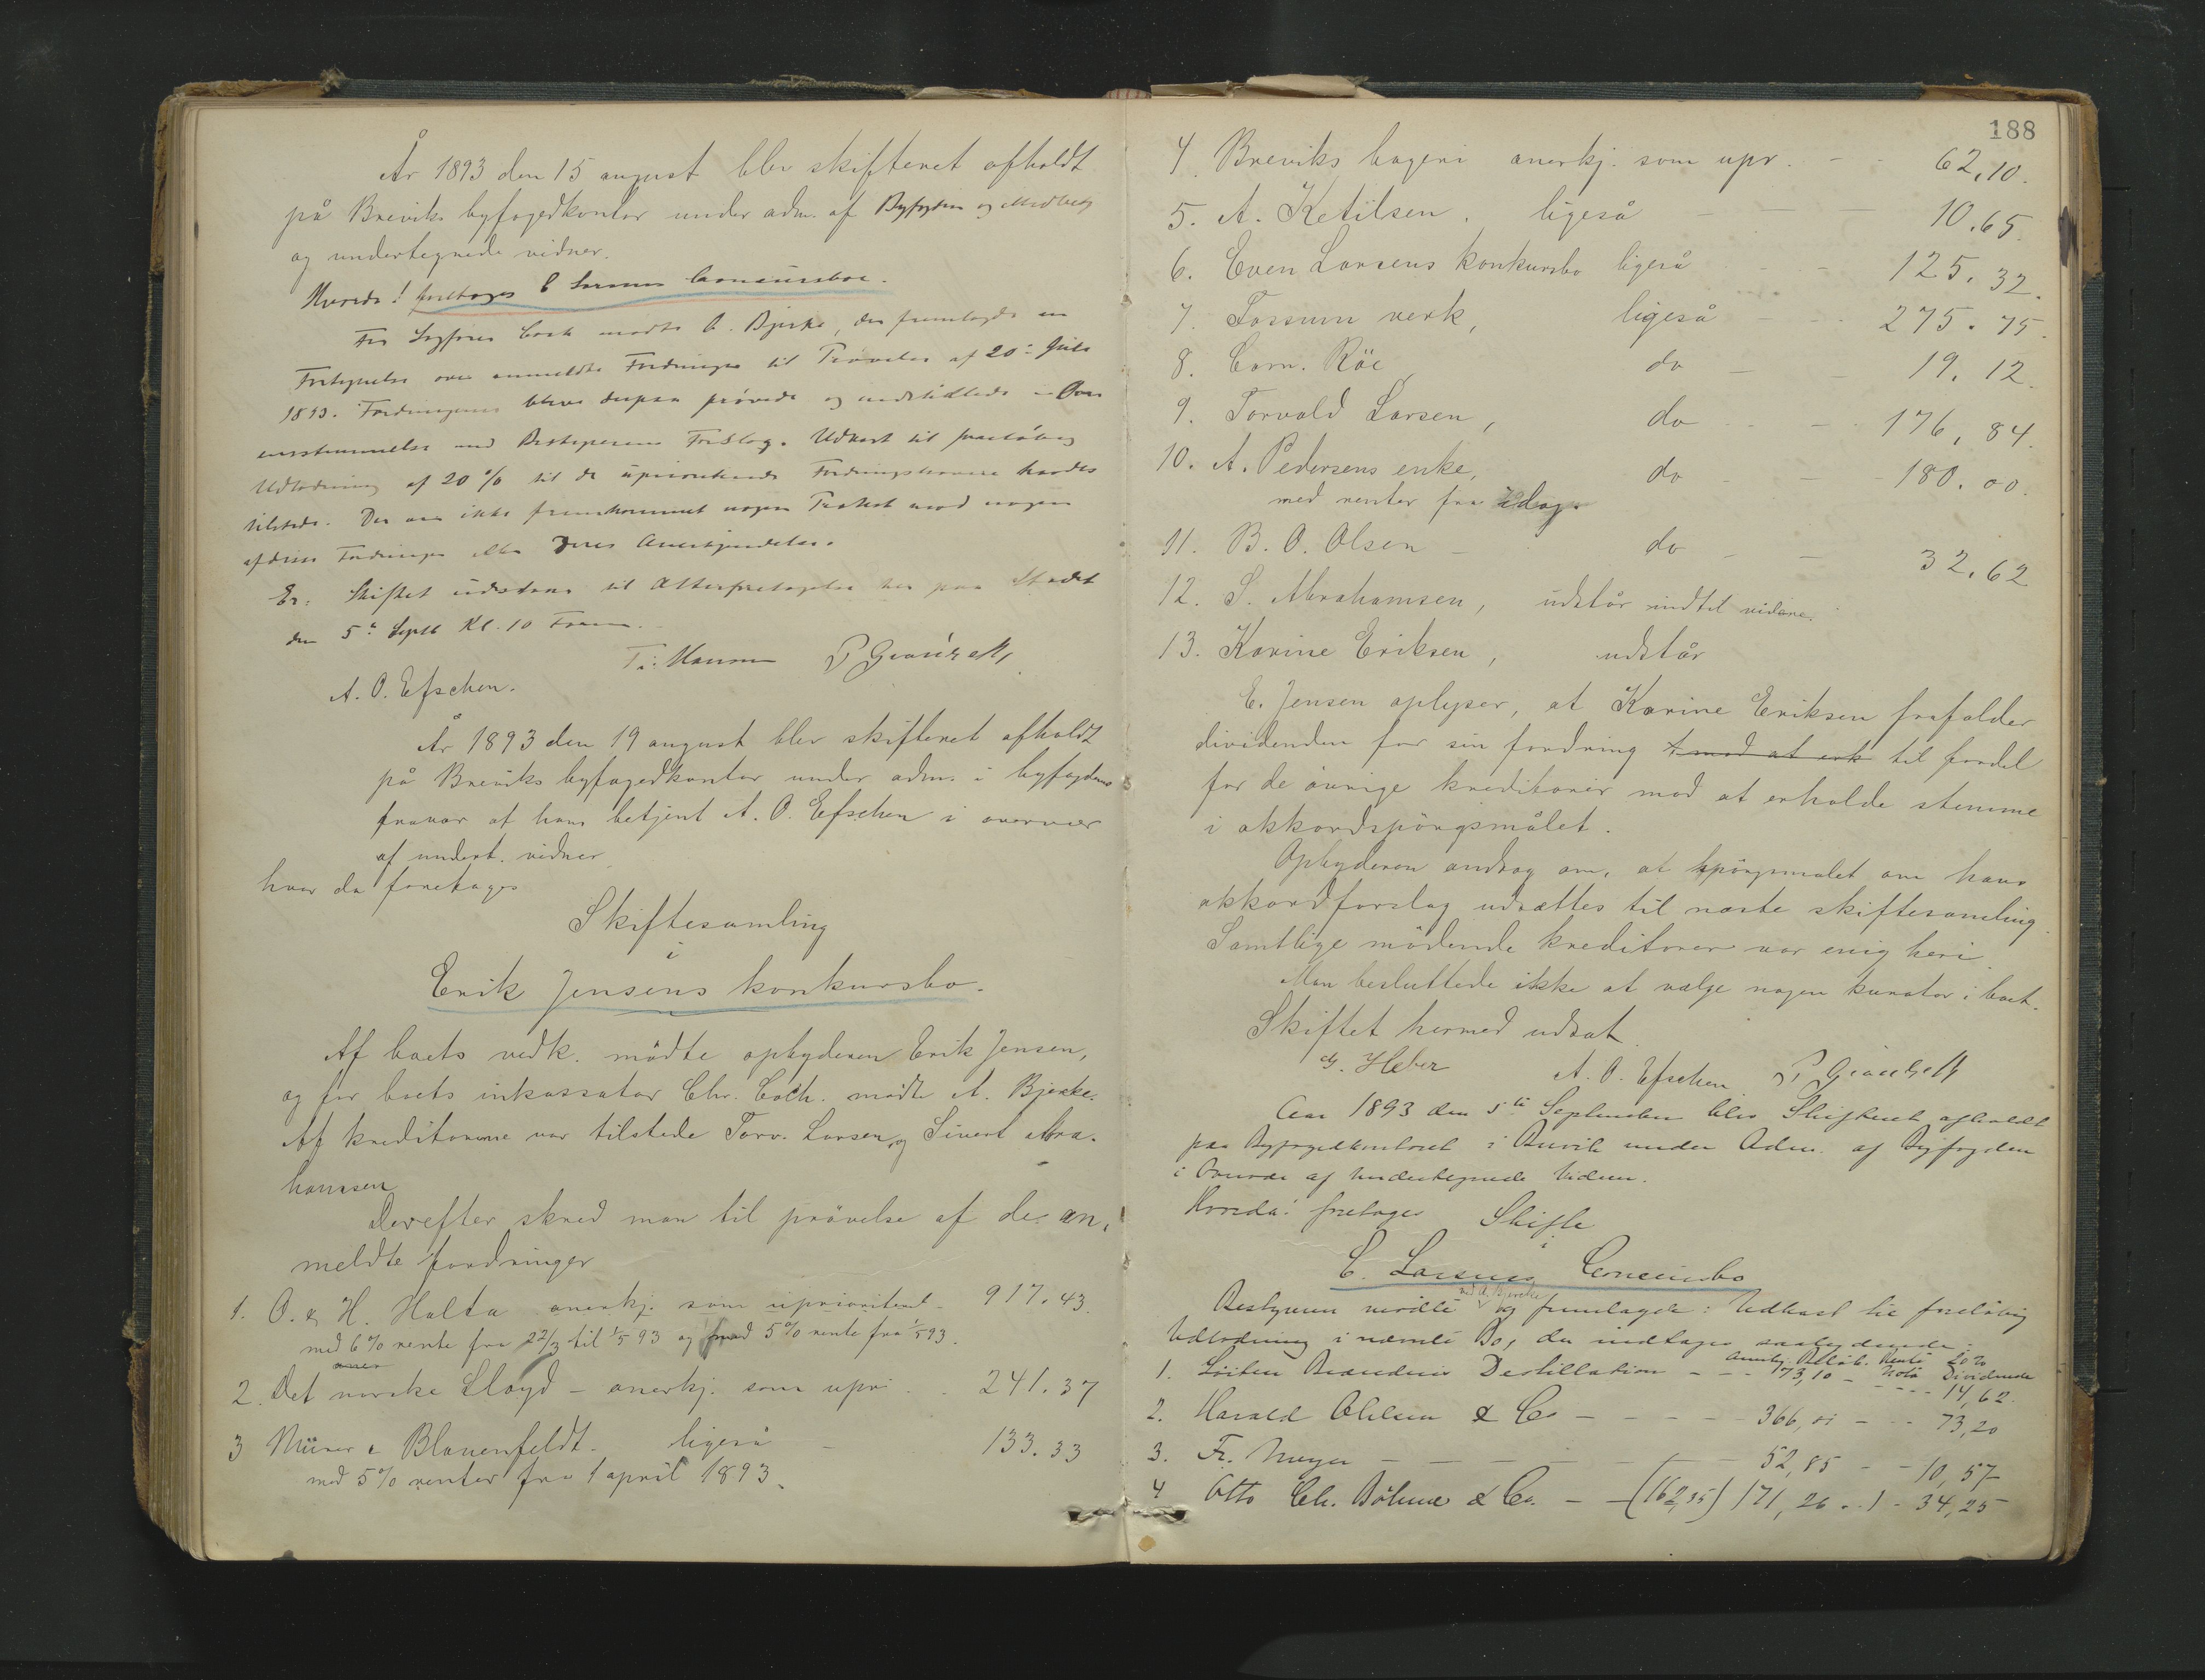 År 1893 den 15 august blev skifteret afholdt
på Breviks byfogedkontor under adm. af Byfogden og Medbetj
og undertegnede vidner.
Hvorda! foretoges E Larsens Concursboe.
For Sagfører Coch mødte A. Bjerke, der fremlagde en
Fortegnelse over anmeldte Fordringer til Prøvelse af 20de Juli
1893. Fordringerne bleve derpaa prøvede og modstilllede i Over
ensstemmelse med Bestyrerens Forslag. Udkast til foreløbig
Udlodning af 20 % til de uprioriterede Fordringshavere havdes
tilstede. Der var ikke fremkommet nogen Protest mod nogen
af disse Fordringer eller deres Anerkjendelse.
Er: Skiftet udsættes til Atterforetagelse her paa Stedet
den 5te Septb Kl. 10 Form.
A. O. Efschen.
År 1893 den 19 august blev skifteret afholdt
på Breviks byfogedkontor under adm. i byfogdens
fravær af hans betjent A. O. Efschen i overvær
af undert. vidner
hvor da foretages
Skiftesamling
i
Erik Jensens konkursbo.
Af boets vedk. mødte opbyderen Erik Jensen,
og for boets inkassator Chr. Coch. mødte A. Bjerke.
Af kreditorerne var tilstede Torv. Larsen og Sivert Abra-
hamsen
Derefter skred man til prövelse af de an,
meldte fordringer
1. O. & H. Holta anerkj. som uprioritert - 917.43.
med 6% rente fra 22/3 til 1/5 93 og med 5% rente fra 1/5 93.
2. Det norske Lloyd - anerkj. som upri . . 241.37
3 Müner & Blauenfeldt. ligeså 133.33
med 5% renter fra 1 april 1893.
188
4. Breviks bageri anerkj. som upr. - - 62,10.
5. A. Ketilsen. ligeså - - 10.65.
6. Even Larsens konkursbo ligeså - - 125.32.
7. Fossum verk, ligeså - - 275.75.
8. Corn. Röe, do - - 19.12.
9. Torvald Larsen, do - - 176,84.
10. A. Pedersens enke, do - - 180.00.
med renter fra idag.
11. B. O. Olsen - do - - 32.62
12. S. Abrahamsen, udstår indtil videre.
13. Karine Eriksen, udstår
E. Jensen oplyser, at Karine Eriksen frafalder
dividenden for sin fordring t mod at erh til fordel
for de øvrige kreditorer mod at erholde stemme
i akkordspörgsmålet.
Opbyderen androg om, at spörgsmålet om hans
akkordforslag udsættes til næste skiftesamling.
Samtlige mödende kreditorer var enig heri.
Man besluttede ikke at vælge nogen kurator i boet.
Skiftet hermed udsat
G. Heber A. O. Efschen
Aar 1893 den 5te September blev Skifteret afholdt
paa Byfogedkontoret i Brevik under Adm. af Byfogden
i Overvær af undertegnede Vidner.
Hvorda! foretages Skifte
i
E. Larsens Concursbo
Bestyreren mødte ved A. Bjerke og fremlagde: Udkast til foreløbig
Udlodning i nævnte Bo, der indtages saalydende:
Anerkj. Beløb. Rente 20 %
Dividende
1. Løiten Brænderis Destillation - - - 73,10 - - - - 14,62.
2. Harald Ohlsen & Co - - - - 366,01 - - - 73,20
3. Fr. Meyer - - - - - - 52,85 - - 10,57
4 Otto Chr. Böhme & Co. - - (162,35) 171,26 . . ) - 34,25